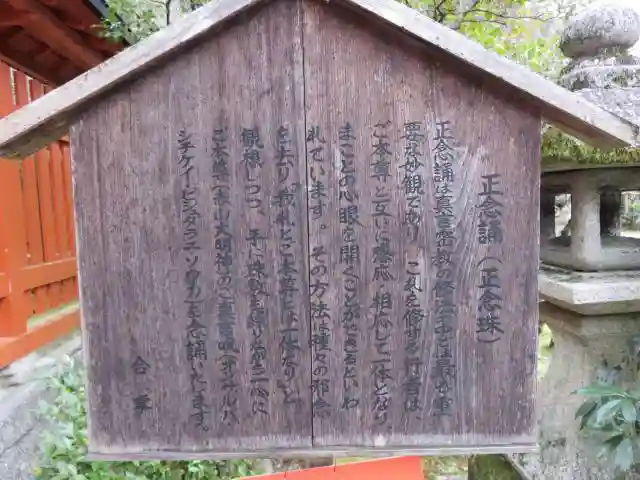 正念誦(正念珠)
正念誦は真言密教の修法の中では最も重
要な妙観であり これを修する行者は、
ご本尊と互いに感応・相応して一体となり
まことの心眼を開くことができるといわ
れています。その方法は種々の邪念
を去り「我れとご本尊とは一体なり」と
観想しつつ、手に珠数を繰りながら一心に
ご本尊(赤山大明神)のご真言 (オンマルハ
シチケイビシヂラニエソワカ)を念誦いたします。
合掌